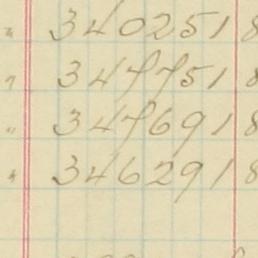 " 340251 8
" 347751 8
" 347691 8
" 346291 8